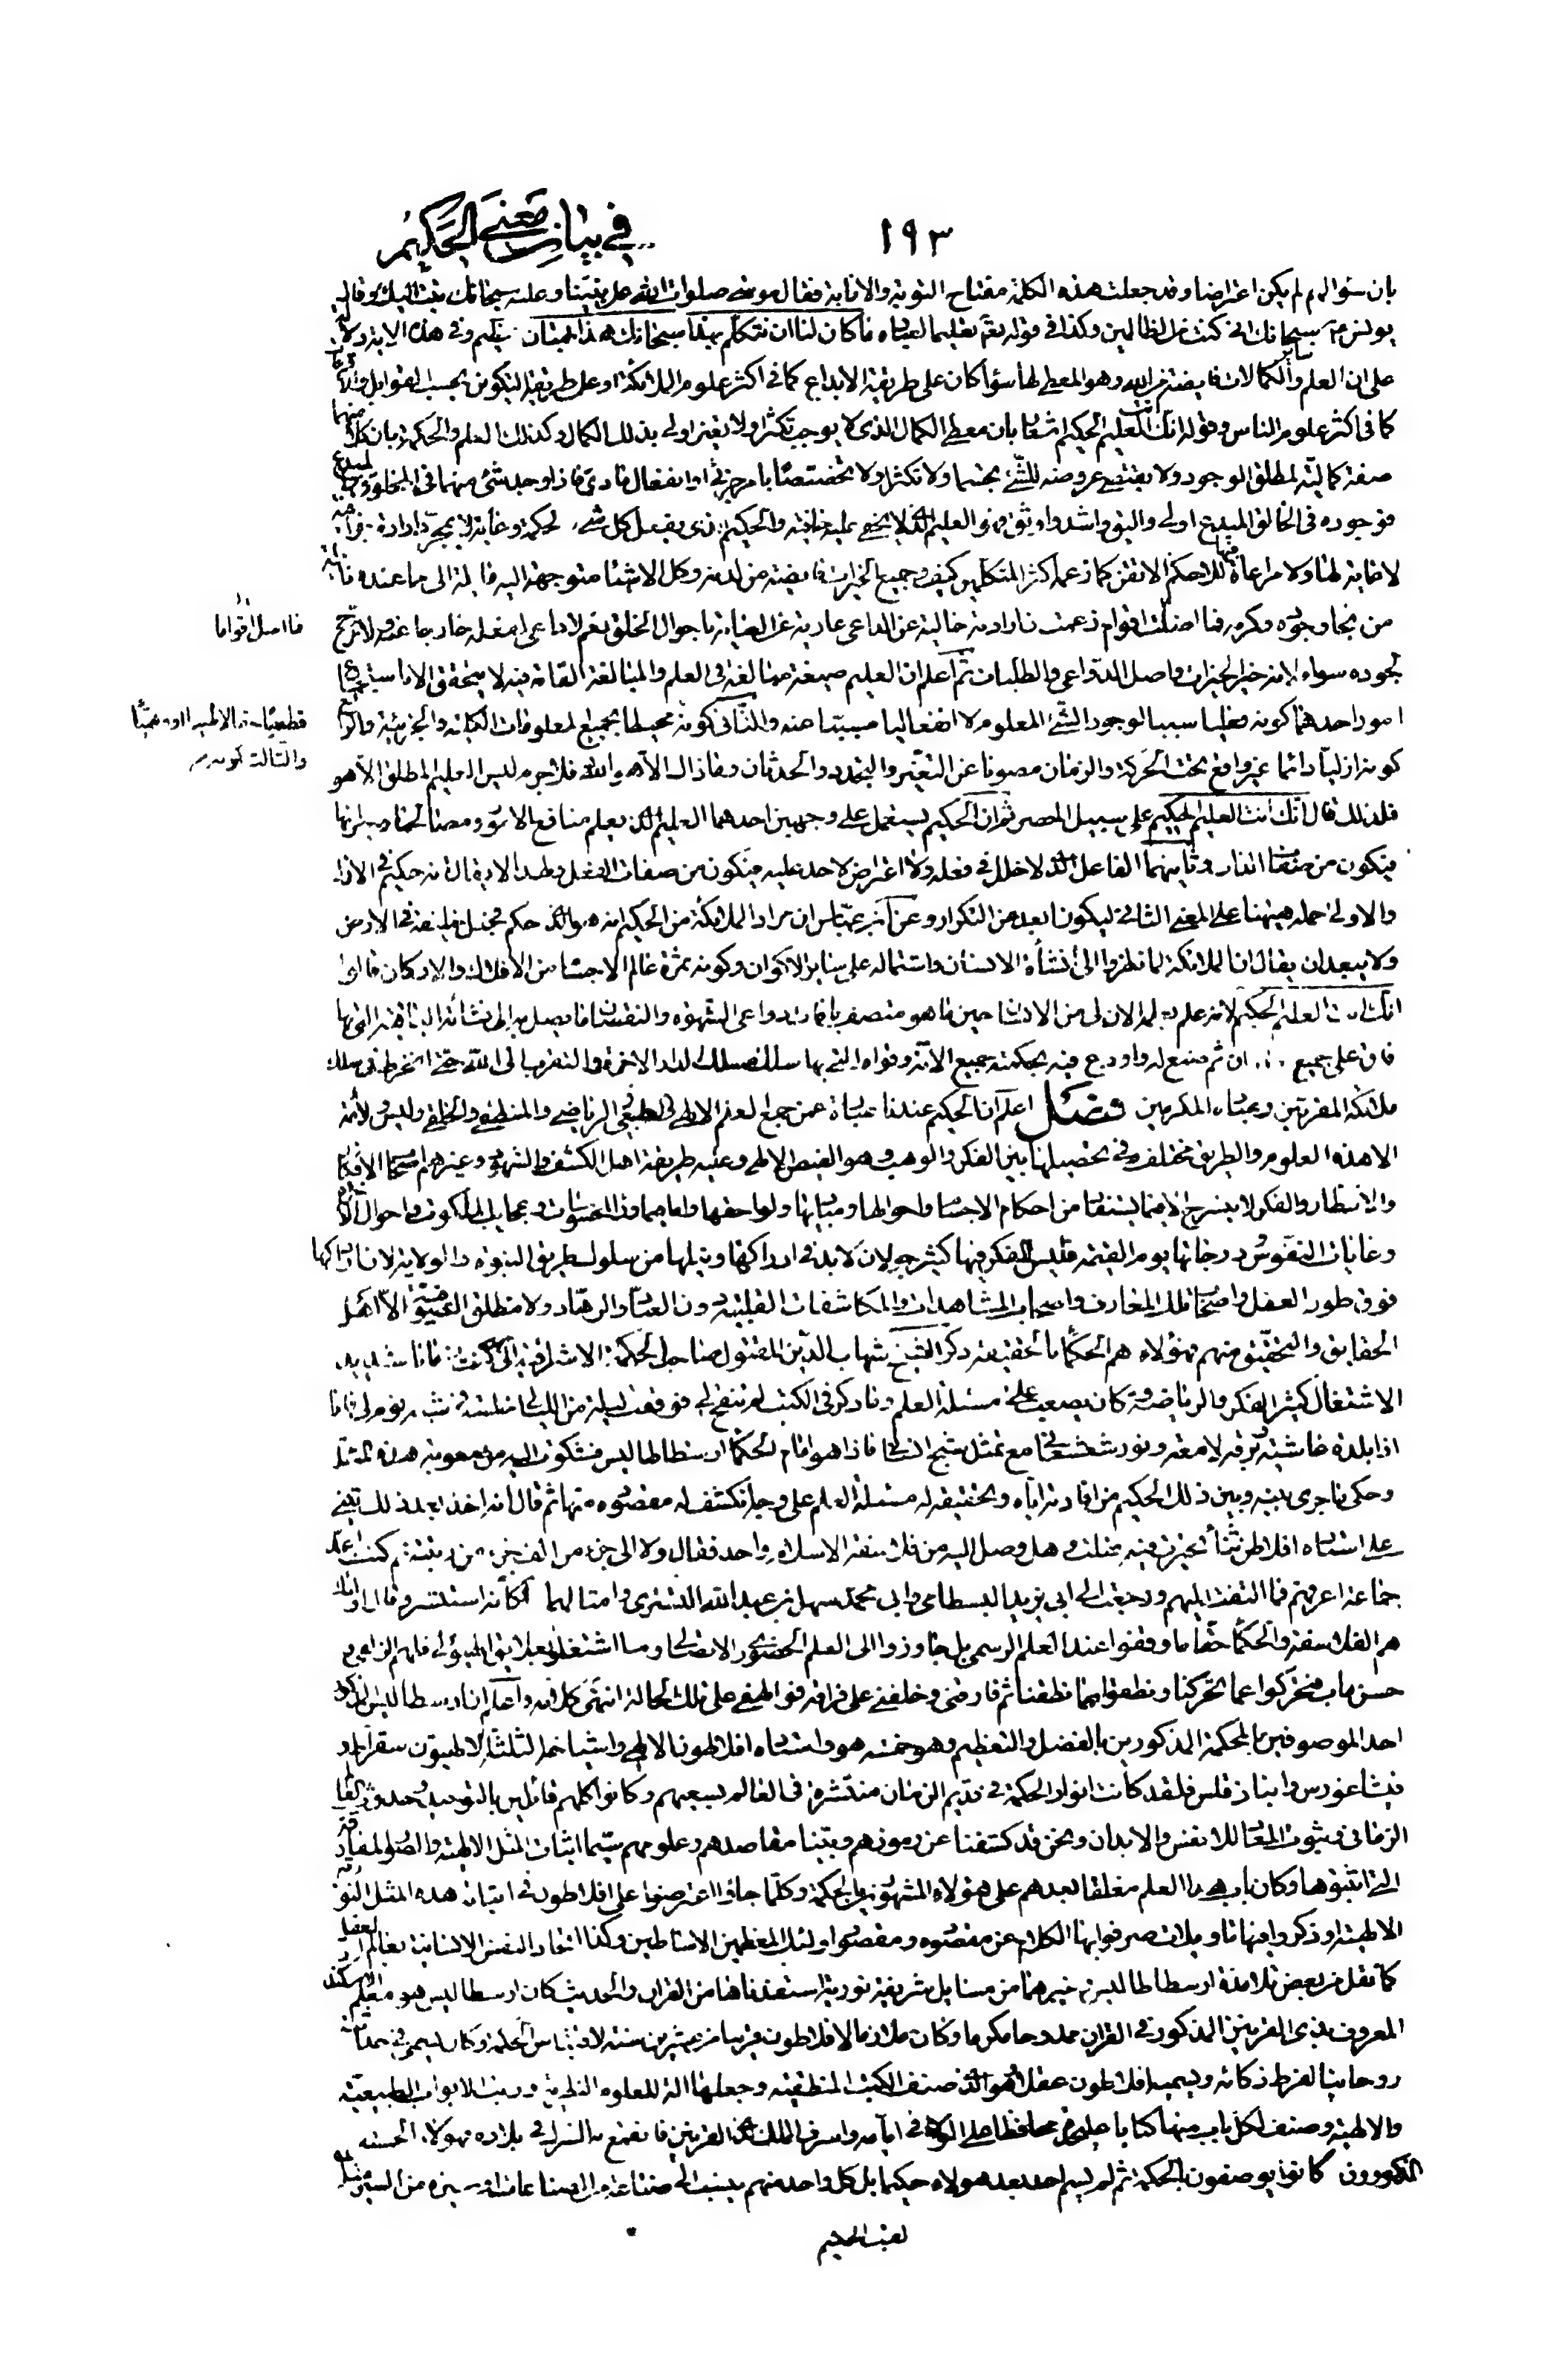 ١٩٣
في بيان معنى الحكيم
بان سؤالهم لم يكن اعتراضا وقد جعلت هذه الكلمة مفتاح التوبة والانابة فقال موسى صلوات الله على نبينا وعليه سبحانك تبت اليك وقال
يونس سبحانك اني كنت من الظالمين وكذا في قوله تعليما لعباده ما كان لنا ان نتكلم بهذا سبحانك هذا بهتان عظيم وفي هذه الاية دلالة
على ان العلم وسائر الكمالات فايضة من الله وهو المعطي لها سواء كان على طريقة الابداع كما في اكثر علوم الملائكة او على طريقة التكوين بحسب القوابل
كما في اكثر علوم الناس وقوله انك انت العليم الحكيم اشعار بان معطي الكمال الذي لا يوجب تكثرا ولا تغيرا اولى بذلك الكمال وكذلك العلم والحكمة بان كلا منهما
صفة كمالية لمطلق الوجود ولا يقتضي عروضه للشيء تجسما ولا تكثرا ولا تخصصا بامر جزئي او انفعال مادي فاذا وجد شيء منهما في المخلوق
فوجوده في الخالق المبدع اولى واليق واشد واوثق فهو العليم الذي لا يخفى عليه خافية والحكيم الذي يفعل كل شيء لحكمة وغاية لا بمجرد ارادة جزافية
لا غاية لها ولا مراعاة فيها للاحكم الاتقن كما زعمه اكثر المتكلمين كيف وجميع الخيرات فايضة من لدنه وكل الاشياء متوجهة اليه مائلة الى ما عنده
من بحار جوده وكرمه فما اضلت اقوام زعمت ارادته خالية عن الداعي عارية عن العناية باحوال الخلق نعم لا داعي لفعله خارجا عنه ولا مرجح
لجوده سواه لانه خير الخيرات واصل الدواعي والطلبات ثم اعلم ان العليم صيغة مبالغة في العلم والمبالغة التامة فيه لا يتحقق الا
امور احدها كونه فعليا سببا لوجود الشيء المعلوم لا انفعاليا مسببا عنه والثاني كونه محيطا بجميع المعلومات الكلية والجزئية
كونه ازليا دائما غير واقع تحت الحركة والزمان مصونا عن التغير والتجدد والحدثان وما ذاك الا هو الله فلا جرم ليس العليم المطلق الا هو
فلذلك قال انك انت العليم الحكيم على سبيل الحصر ثم ان الحكيم يستعمل على وجهين احدهما العليم الذي يعلم منافع الامور ومصالحها
فيكون من صفات الذات وثانيهما الفاعل الذي لا خلل في فعله ولا اعتراض لاحد عليه فيكون من صفات الفعل
والاولى حمله هيهنا على المعنى الثاني ليكون ابعد من التكرار وعن ابن عباس ان مراد الملائكة من الحكيم انه هو الذي حكم بجعل خليفة في الارض
ولا يبعد ان يقال ان الملائكة لما نظروا الى نشأة الانسان واشتماله على سائر الاكوان وكونه ثمرة عالم الاجسام من الافلاك والاركان قالوا
انك انت العليم الحكيم لانه علم
فاق على جميع ثم صنع له واودع فيه بحكمته جميع الآته وقواه التي بها سلك مسلك لدار الاخرة والتقرب الى الله حتى انخرط في سلك
ملائكته المقربين وعباده المكرمين فصل اعلم ان الحكيم عندنا عبارة عمن جمع العلم الالهي والطبيعي والرياضي والمنطقي والخلقي وليس ثمة
الا هذه العلوم والطريق مختلف في تحصيلها بين الفكر والوهب وهو الفيض الالهي وعليه طريقة اهل الكشف والشهود وغيرهم اصحاب الافكار
والانظار والفكر لا يسرح الا فيما يستفاد من احكام الاجسام واحوالها ومباديها ولواحقها واما ما وراء المحسوسات وعجايب الملكوت واحوال
وغايات النفوس ودرجاتها يوم القيمة فليس للفكر فيها كثير جولان لا بد في ادراكها ونيلها من سلوك طريق النبوة والولاية لان ادراكها
فوق طور العقل واصحاب تلك المعارف واصحاب المشاهدات والمكاشفات القلبية دون العباد والزهاد ولا مطلق الصوفية الا اهل
الحقايق والتحقيق منهم فهؤلاء هم الحكماء بالحقيقة ذكر الشيخ شهاب الدين المقتول صاحب الحكمة الاشراقية اني كنت زمانا شديد
الاشتغال كثير الفكر والرياضة وكان يصعب علي مسئلة العلم وما ذكر في الكتب لم يتنقح لي فوقعت ليلة من الليالي
اذا بلذة غاشية وبرقة لامعة ونور شعشعاني مع تمثل شبح انساني فاذا هو امام الحكماء ارسطاطاليس فشكوت اليه من صعوبة هذه المسئلة
وحكى ما جرى بينه وبين ذلك الحكيم من افادته اياه وتحقيقه له مسئلة العلم على وجه انكشف له مقصوده منها ثم قال انه اخذ بعد ذلك يثني
على استاده افلاطن ثناء تحيرت فيه فقلت وهل وصل اليه من فلاسفة الاسلام واحد فقال ولا الى جزء من الف جزء من رتبته ثم كنت اعد
جماعة اعرفهم فما التفت اليهم ورجعت الى ابي يزيد البسطامي وابي محمد سهل بن عبد الله التستري وامثالهما فكأنه استبشر وقال اولئك
هم الفلاسفة والحكماء حقا ما وقفوا عند العلم الرسمي بل جاوزوا الى العلم الحضوري الاتصالي وما اشتغلوا بعلايق الهيولى فلهم الزلفى
حسن مآب فتحركوا عما تحركنا ونطقوا بما نطقنا ثم فارقني وخلفني على فراقه فوالهفي على تلك الحالة انتهى كلامه واعلم ان ارسطاطاليس المذكور
احد الموصوفين بالحكمة المذكورين بالفضل والتعظيم وهو خمسة هو واستاده افلاطون الالهي واشياخه الثلثة الالهيون سقراط
فيثاغورس وانباذقلس فلقد كانت انوار الحكمة في قديم الزمان منتشرة في العالم بسعيهم وكانوا كلهم قائلين بالتوحيد وحدوث العالم
الزماني وثبوت المعاد للانفس والابدان ونحن قد كشفنا عن رموزهم وبينا مقاصدهم وعلومهم سيما اثبات المثل الالهية والصور المفارقة
التي اثبتوها وكان باب هذا العلم مغلقا بعدهم على هؤلاء المشهورين بالحكمة وكلما جاؤا اعترضوا على افلاطون في اثبات هذه المثل النورية
الالهية وذكروا فيها تاويلات صرفوا بها الكلام عن مقصوده ومقصود اولئك المعظمين الاساطين وكذا اتحاد النفس الانسانية بعالم العقل
كما نقل من بعض تلامذة ارسطاطاليس وغيرهما من مسايل شريفة نورية استفدناها من القرآن والحديث كان ارسطاطاليس هو معلم الاسكندر
المعروف بذي القرنين المذكور في القرآن ممدوحا مكرما وكان ملازما لافلاطون قريبا من عشرين سنة لاقتباس الحكمة وكان يسمى في حداثته
روحانيا لفرط ذكائه ويسميه افلاطون عقلا وهو الذي صنف الكتب المنطقية وجعلها الة للعلوم النظرية ورتب الابواب الطبيعية
والالهية وصنف لكل باب منها كتابا على حدة محافظا على الولاء في ايامه واستقر الملك لذي القرنين فانقمع به الشرك في بلاده فهؤلاء الخمسة
المذكورون كانوا يوصفون بالحكمة ثم لم يسم احد بعد هؤلاء حكيما بل كل واحد منهم ينسب الى صناعة من الصناعات او سيرة من السير
فما اضل اقواما
والثالث كونه
لقب الحكيم